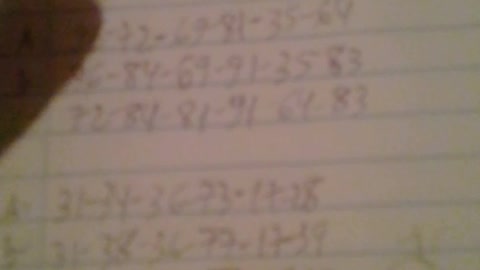 72-69-81-35-64
-84-69-91-35-83
72-84-81-91-64-83
31-34-36-73-17-38
31-38-36-77-17-39